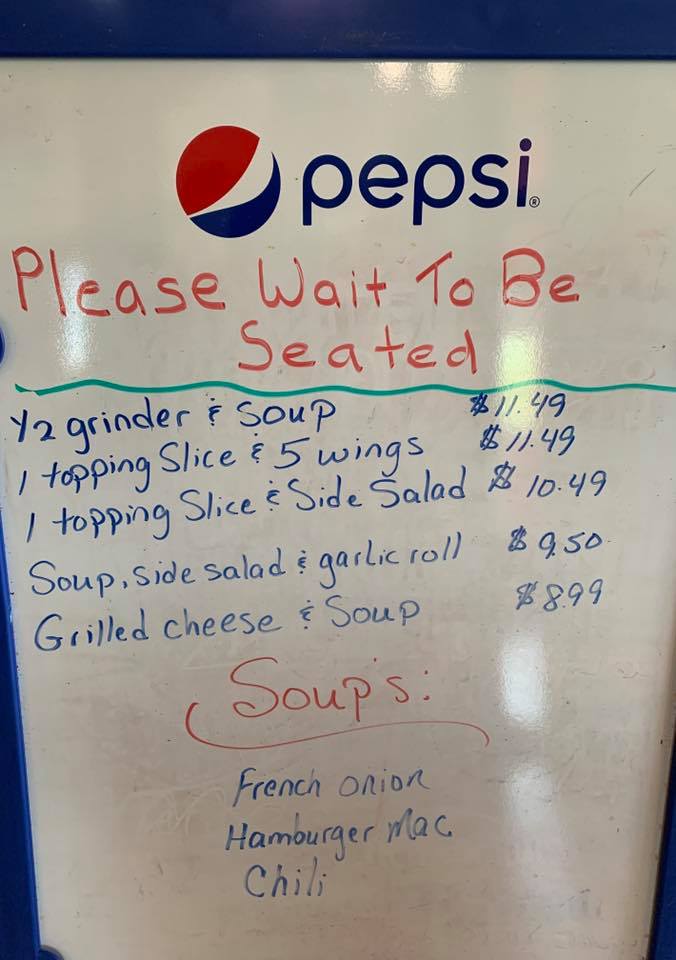 pepsi®
Please Wait To Be
Seated
1/2 grinder & Soup $11.49
1 topping Slice & 5 wings $11.49
1 topping Slice & Side Salad $10.49
Soup, side salad & garlic roll $9.50
Grilled cheese & Soup $8.99
Soup's:
French onion
Hamburger Mac
Chili